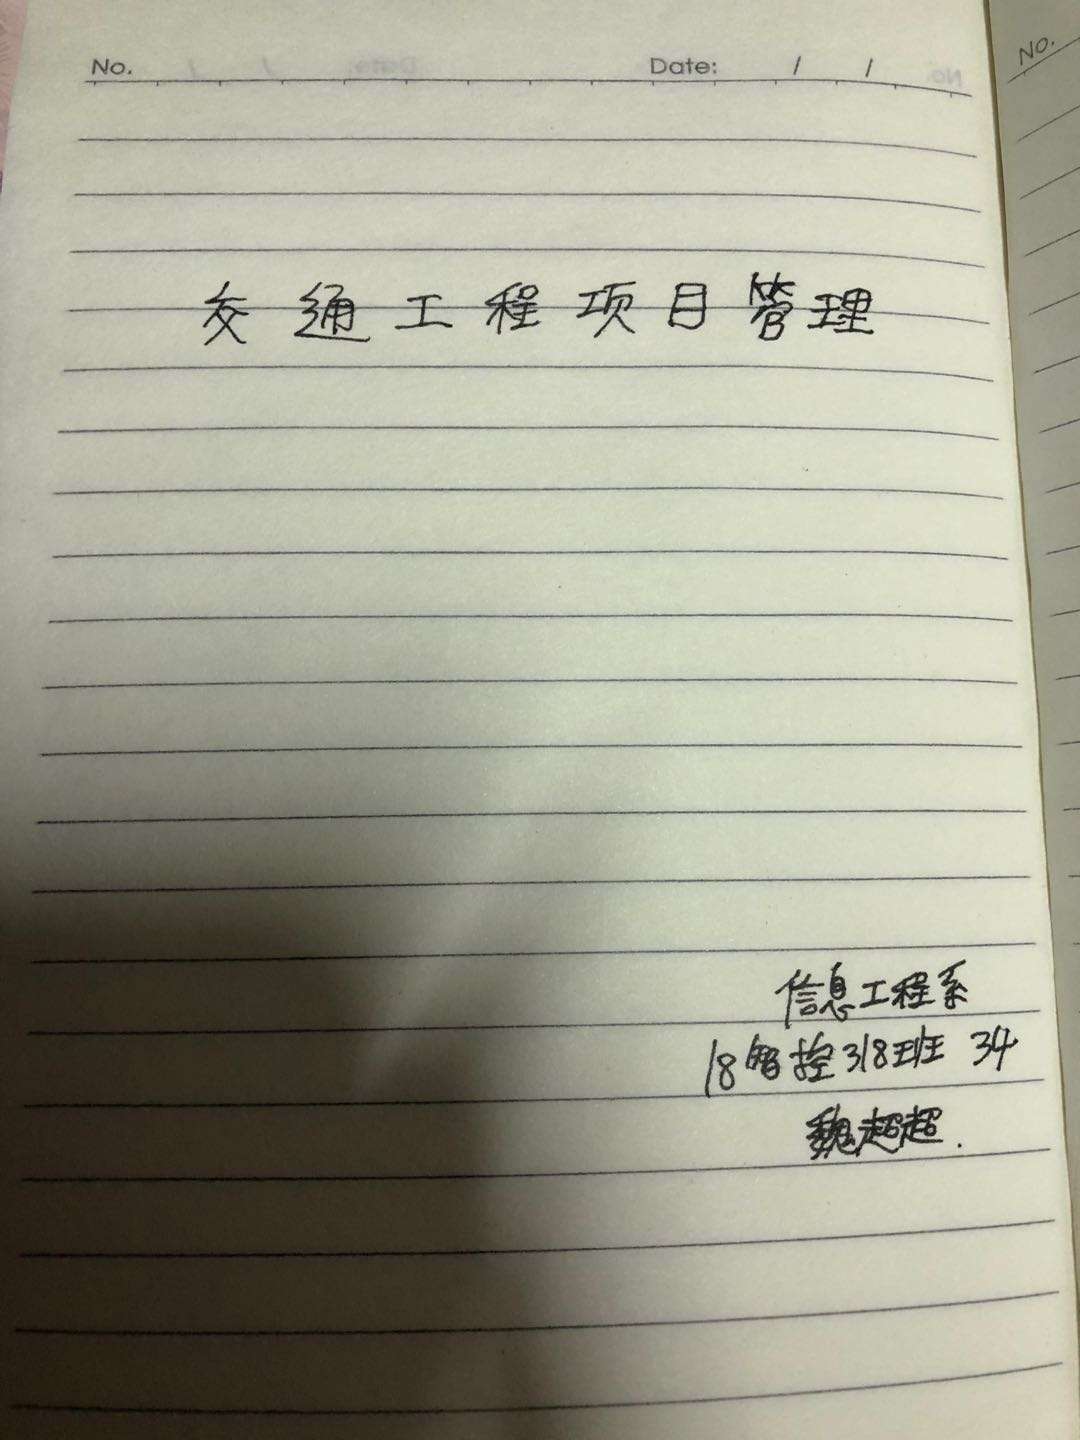 No. Date: / / No.
交通工程项目管理
信息工程系
18智控318班 34
魏超超.